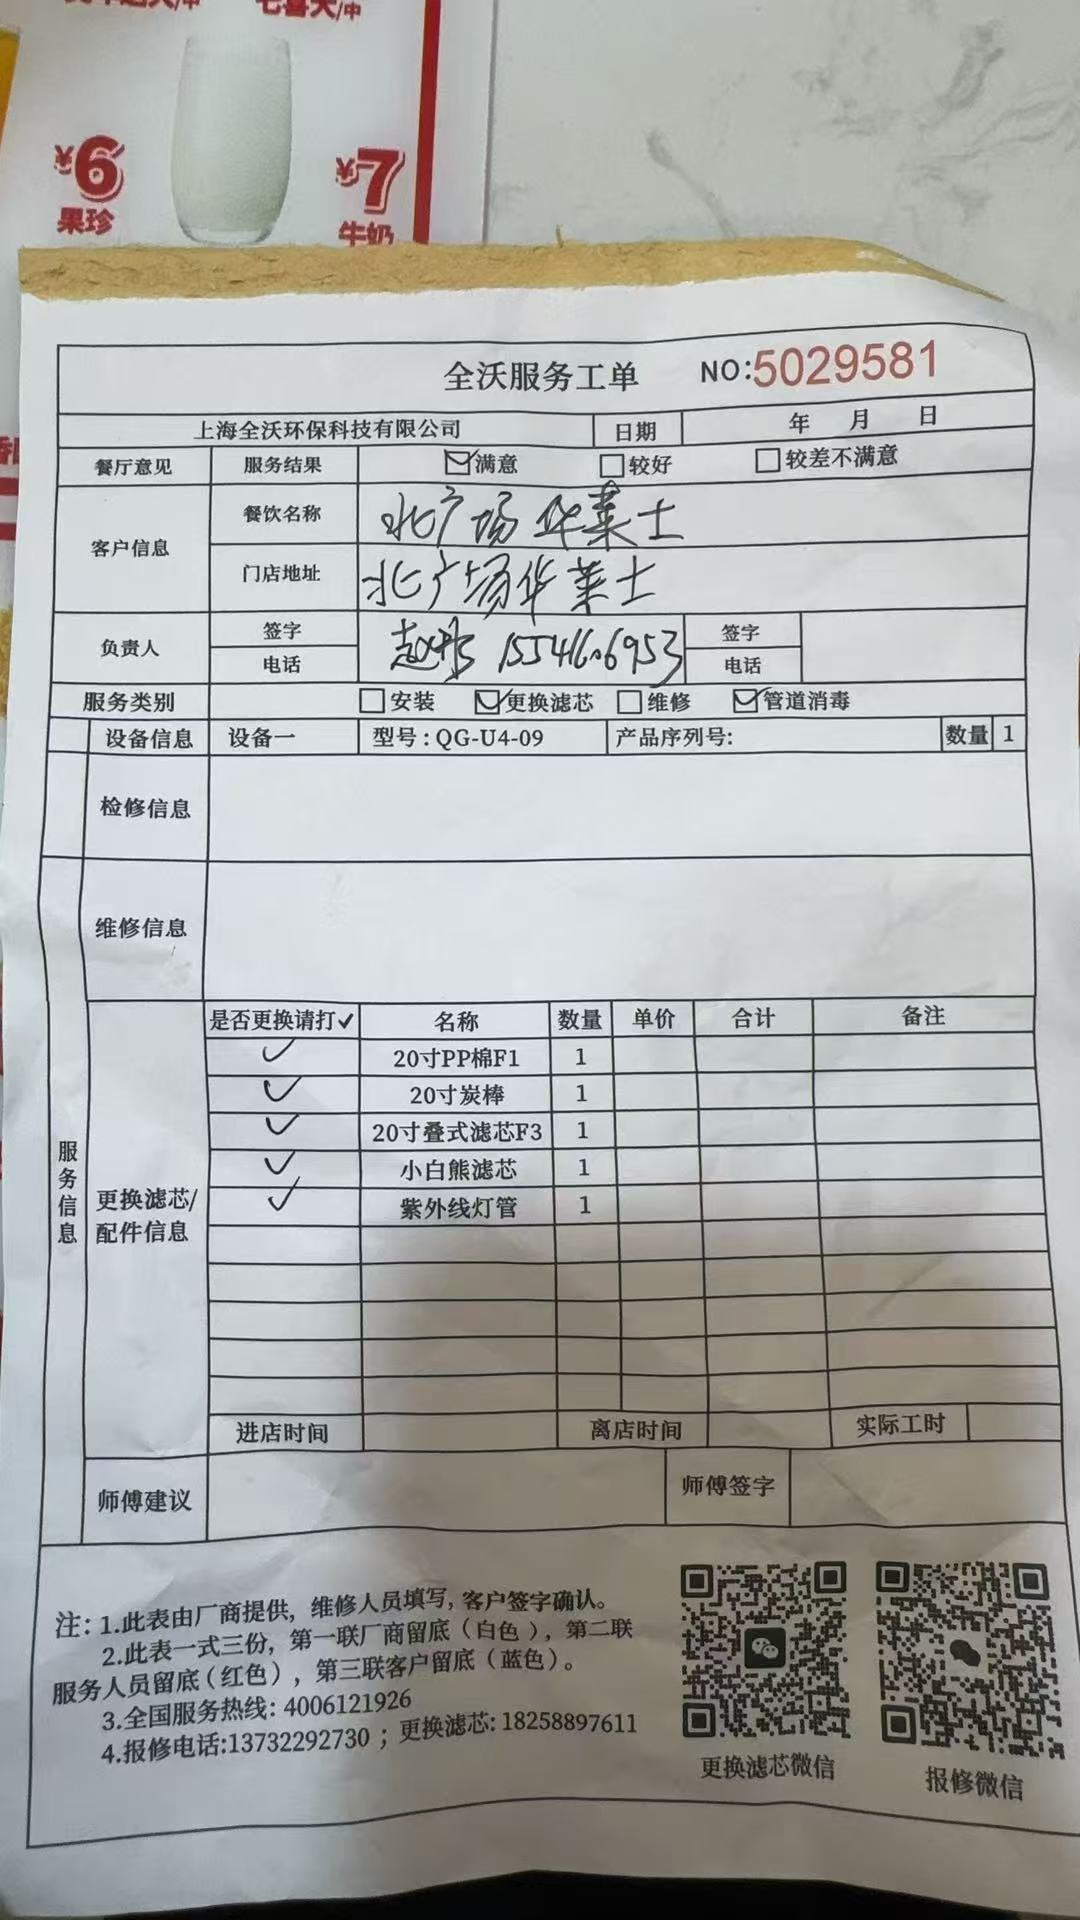 ¥6
果珍
¥7
牛奶
全沃服务工单 NO:5029581
上海全沃环保科技有限公司 日期 年 月 日
餐厅意见 服务结果 ☑满意 ☐较好 ☐较差不满意
客户信息 餐饮名称 北广场华莱士
门店地址 北广场华莱士
负责人 签字 签字
电话 15541606953 电话
服务类别 ☐安装 ☑更换滤芯 ☐维修 ☑管道消毒
设备信息 设备一 型号:QG-U4-09 产品序列号: 数量 1
检修信息
维修信息
服务信息
更换滤芯/配件信息
是否更换请打✓ 名称 数量 单价 合计 备注
✓ 20寸PP棉F1 1
✓ 20寸炭棒 1
✓ 20寸叠式滤芯F3 1
✓ 小白熊滤芯 1
✓ 紫外线灯管 1
进店时间 离店时间 实际工时
师傅建议 师傅签字
注: 1.此表由厂商提供, 维修人员填写, 客户签字确认。
2.此表一式三份, 第一联厂商留底(白色), 第二联
服务人员留底(红色), 第三联客户留底(蓝色)。
3.全国服务热线: 4006121926
4.报修电话:13732292730 ; 更换滤芯: 18258897611
更换滤芯微信
报修微信